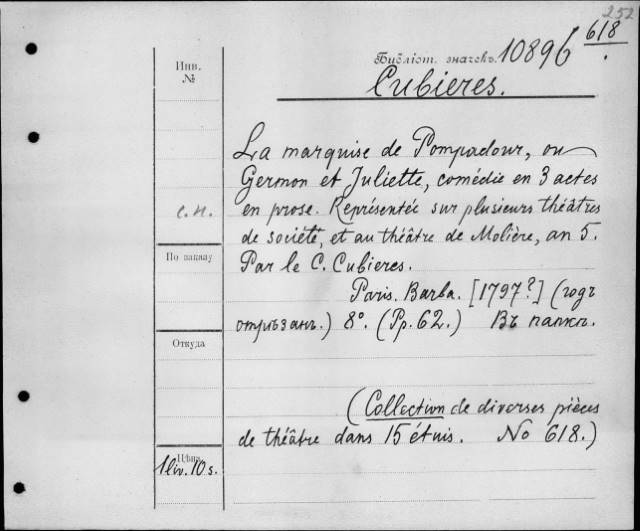 252
618
Инв.
№
Библіот. значекъ. 10896
Cubieres.
La marquise de Pompadour, ou
Germon et Juliette, comédie en 3 actes
с.н.
en prose. Représentée sur plusieurs théâtres
de société, et au théâtre de Molière, an 5.
По шкапу
Par le C. Cubieres.
Paris. Barba. [1797?] (годъ
отрѣзанъ.) 8°. (Pp. 62.) Въ папкѣ.
Откуда
(Collection de diverses pièces
de théâtre dans 15 étuis. No 618.)
Цѣна
1 liv. 10 s.